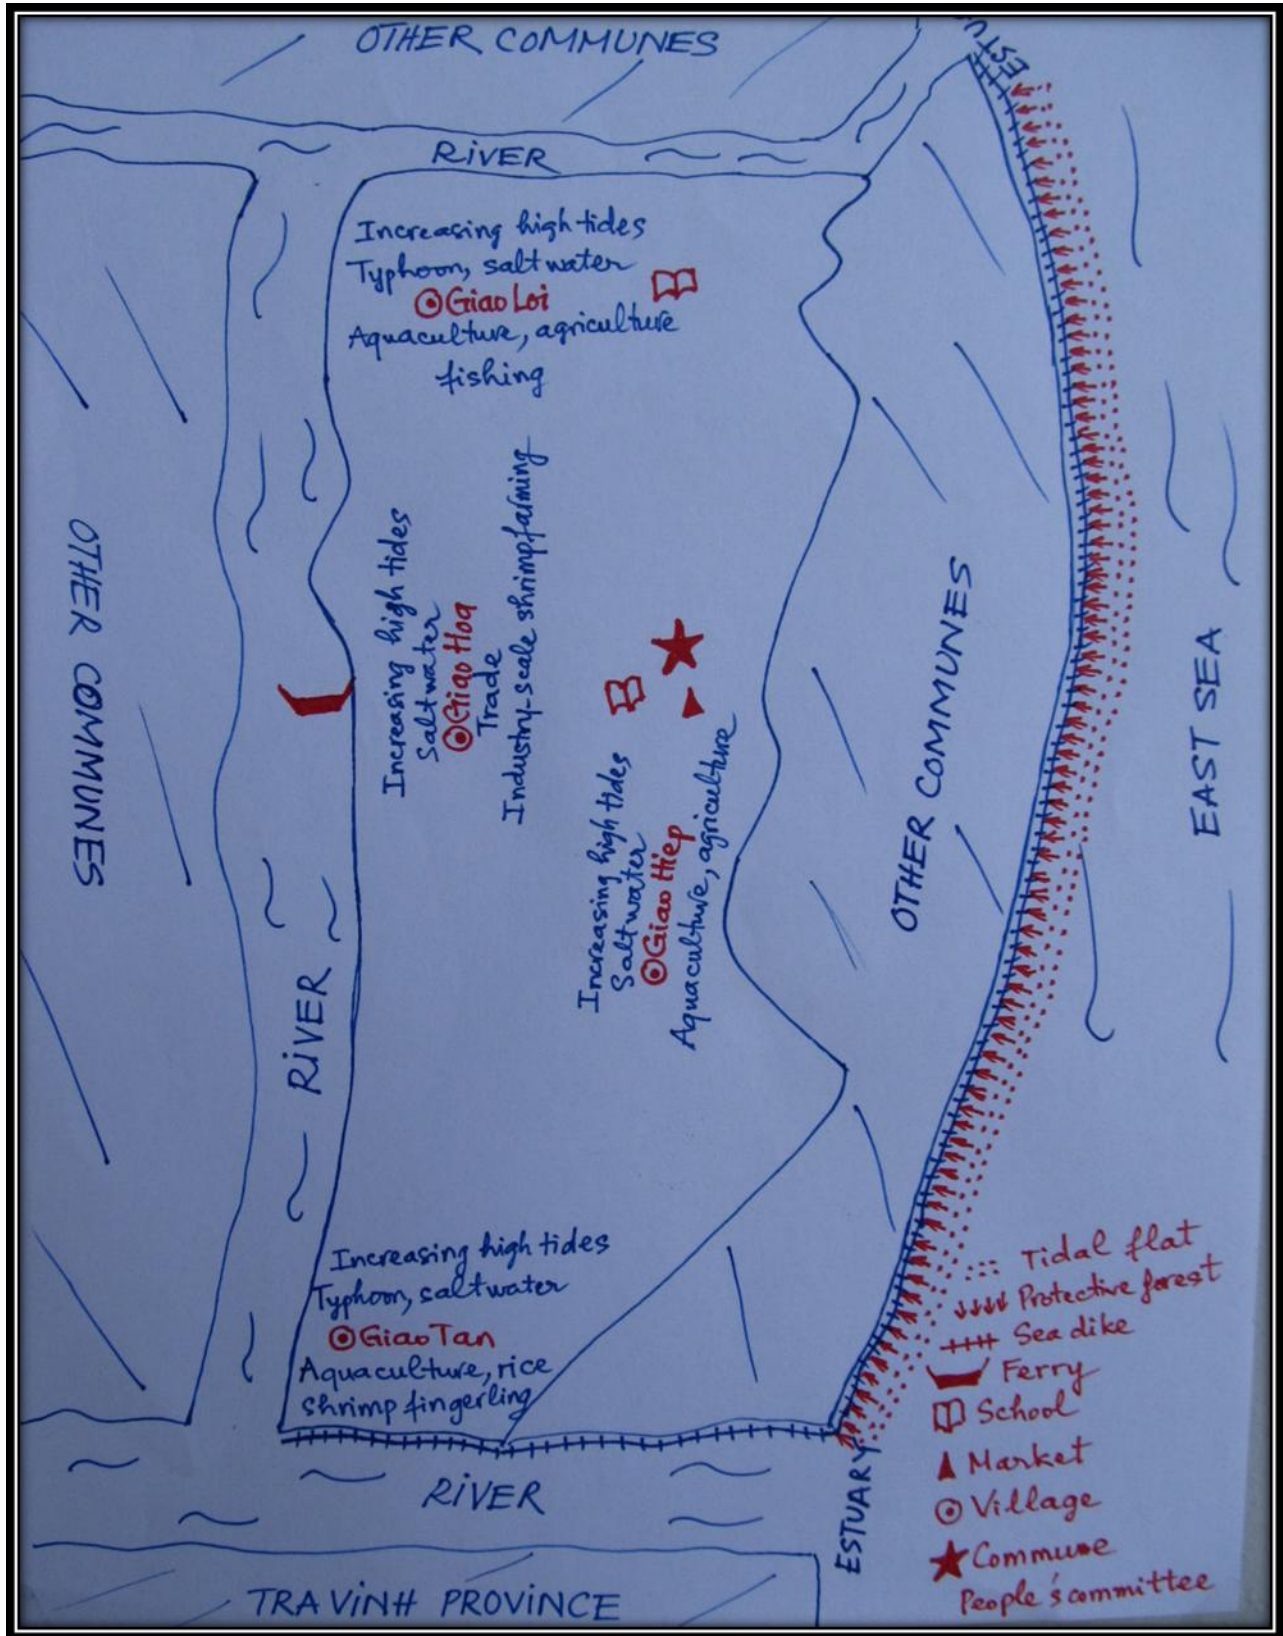 OTHER COMMUNES
ESTU
RIVER
Increasing high tides
Typhoon, saltwater
Giao Loi
Aquaculture, agriculture
fishing
OTHER COMMUNES
Increasing high tides
Saltwater
Giao Hoa
Trade
Industry-scale shrimp farming
Increasing high tides
Saltwater
Giao Hiep
Aquaculture, agriculture
OTHER COMMUNES
EAST SEA
RIVER
Increasing high tides
Typhoon, saltwater
Giao Tan
Aquaculture, rice
Shrimp fingerling
RIVER
ESTUARY
TRAVINH PROVINCE
Tidal flat
Protective forest
Sea dike
Ferry
School
Market
Village
Commune
People's committee